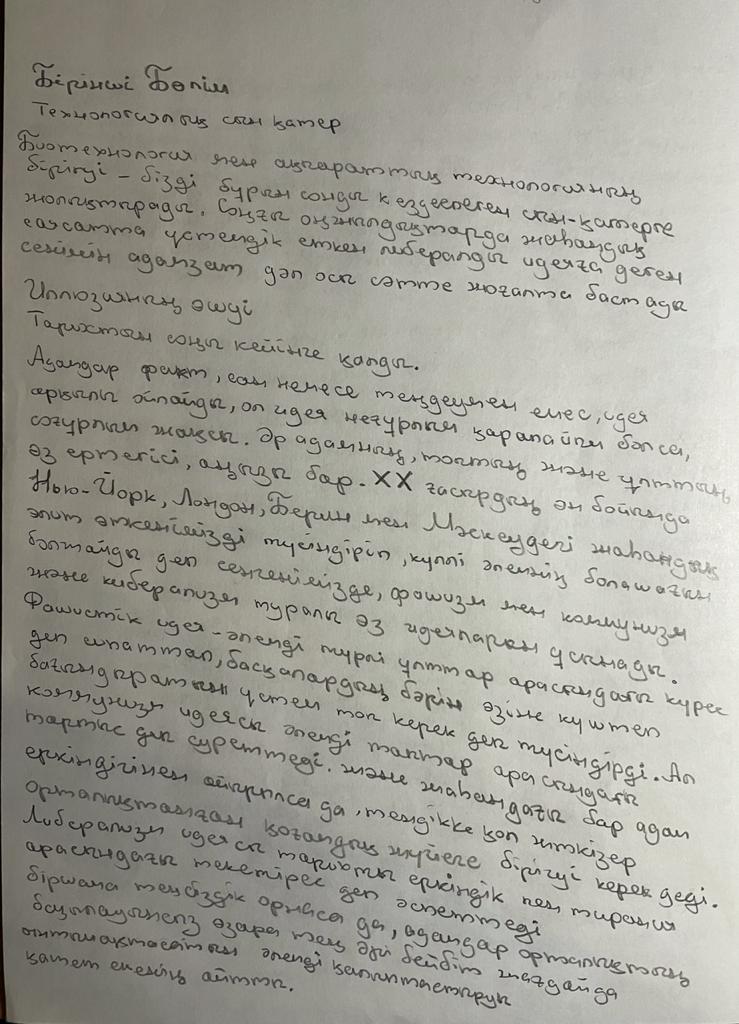 Бірінші Бөлім
Технологиялық сын қатер
Биотехнология мен ақпараттық технологияның
бірігуі – бізді бұрын соңды кездеспеген сын-қатерге
жолықтырады. Соңғы онжылдықтарда жаһандық
саясатта үстемдік еткен либералды идеяға деген
сенімін адамзат дәл осы сәтте жоғалта бастады
Иллюзияның өшуі
Тарихтың соңы кейінге қалды.
Адамдар факт, сан немесе теңдеумен емес, идея
арқылы ойлайды, ол идея неғұрлым қарапайым болса,
соғұрлым жақсы. Әр адамның, топтың және ұлттың
өз ертегісі, аңызы бар. XX ғасырдың өн бойында
Нью-Йорк, Лондон, Берлин мен Мәскеудегі жаһандық
элит өткенімізді түсіндіріп, күллі әлемнің болашағын
болжайды деп сенгенімізде, фашизм мен коммунизм
және либерализм туралы өз идеяларын ұсынады.
Фашистік идея – әлемді түрлі ұлттар арасындағы күрес
деп сипаттап, басқалардың бәрін өзіне күштеп
бағындыратын үстем топ керек деп түсіндірді. Ал
коммунизм идеясы әлемді таптар арасындағы
тартыс деп суреттеді. және жаһандағы бар адам
еркіндігінен айырылса да, теңдікке қол жеткізер
орталықтанған қоғамдық жүйеге бірігуі керек деді.
Либерализм идеясы тарихты еркіндік пен тирания
арасындағы текетірес деп әспеттеді
біршама теңсіздік орнаса да, адамдар орталықтың
бақылауынсыз өзара тең әрі бейбіт жағдайда
ынтымақтасатын әлемді қалыптастыруы
қажет екенің айтты.